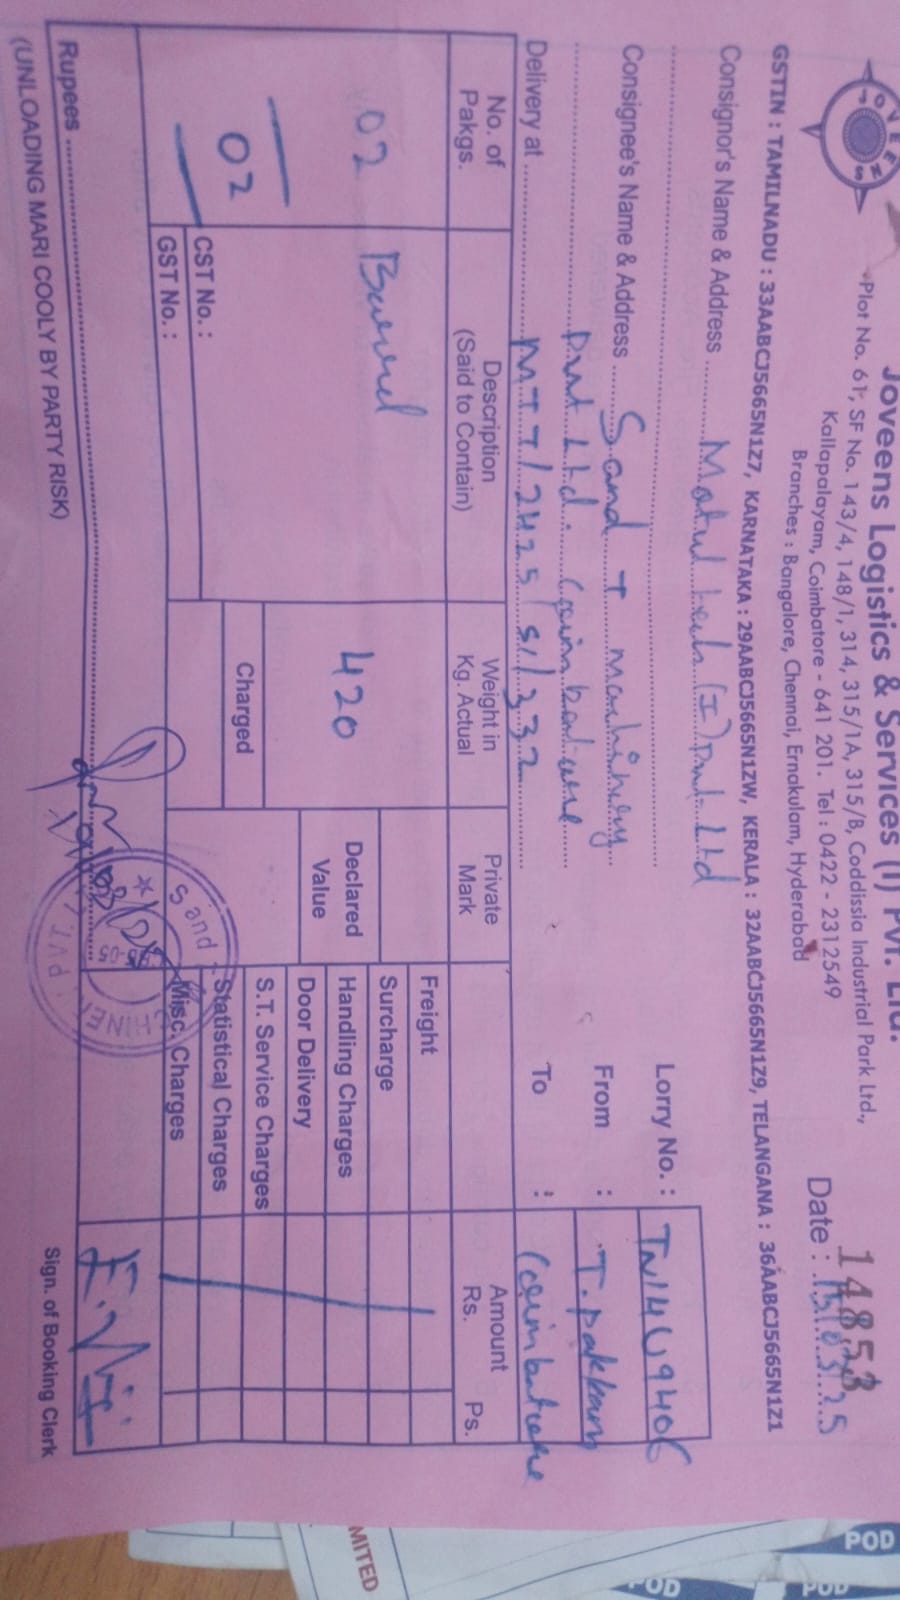 Joveens Logistics & Services (I) Pvt. Ltd.
Plot No. 61, SF No. 143/4, 148/1, 314, 315/1A, 315/B, Coddissia Industrial Park Ltd.,
Kallapalayam, Coimbatore - 641 201. Tel : 0422 - 2312549
Branches : Bangalore, Chennai, Ernakulam, Hyderabad
14853
Date :
GSTIN : TAMILNADU : 33AABCJ5665N1Z7, KARNATAKA : 29AABCJ5665N1ZW, KERALA : 32AABCJ5665N1Z9, TELANGANA : 36AABCJ5665N1Z1
Consignor's Name & Address Motul Tech (I) Pvt Ltd
Lorry No. : TN14U9406
Consignee's Name & Address Sand + machinery
From : T.pakkam
Pvt Ltd. Coimbatore
Delivery at MTT/2425/SI/332
To : Coimbatore
No. of Pakgs.
Description (Said to Contain)
Weight in Kg. Actual
Private Mark
Amount
Rs. Ps.
02 Barrel 420
02
Charged
Declared Value
Freight
Surcharge
Handling Charges
Door Delivery
S.T. Service Charges
Statistical Charges
Misc. Charges
CST No. :
GST No. :
Rupees
(UNLOADING MARI COOLY BY PARTY RISK)
Sign. of Booking Clerk
Sand
PVT
MITED
POD
POD
POD